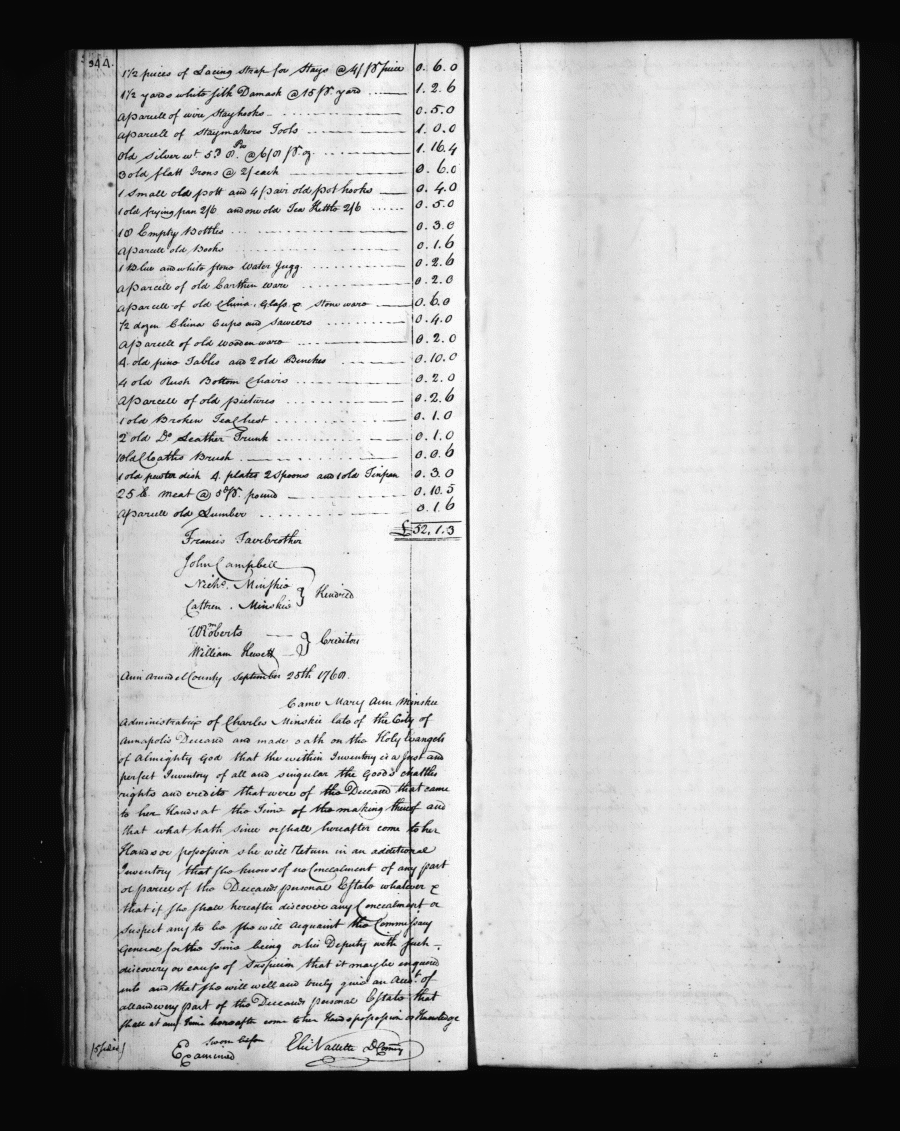 344.
1 1/2 pieces of Lacing Strap for Stays @ 4/ pr piece 0. 6. 0
1 1/2 yards white silk Damask @ 15/ pr. yard 1. 2. 6
a parcell of wire Stayhooks 0. 5. 0
a parcell of Staymakers Tools 1. 0. 0
old Silver wt 5 @ 6/8 pr. oz. 1. 16. 4
3 old flatt Irons @ 2/ each 0. 6. 0
1 Small old pott and 4 pair old pot hooks 0. 4. 0
1 old frying pan 2/6 and one old Tea Kettle 2/6 0. 5. 0
18 Empty Bottles 0. 3. 0
a parcell old Books 0. 1. 6
1 Blue and white stone Water Jugg. 0. 2. 6
a parcell of old Earthen ware 0. 2. 0
a parcell of old China, Glass & Stone ware 0. 6. 0
1/2 dozen China Cups and Sawcers 0. 4. 0
a parcell of old wooden ware 0. 2. 0
4 old pine Tables and 2 old Benches 0. 10. 0
4 old Rush Bottom Chairs 0. 2. 0
a parcell of old pictures 0. 2. 6
1 old Broken Tea Chest 0. 1. 0
2 old Do Leather Trunk 0. 1. 0
1 old Cloaths Brush 0. 0. 6
1 old pewter dish 4 plates 2 Spoons and 1 old Tinpan 0. 3. 0
25 lb meat @ 5d pr. pound 0. 10. 5
a parcell old Lumber 0. 1. 6
£52. 1. 3
Francis Fairbrother
John Campbell
Nichs. Minskie
Cattren. Minskie } Kindred
Wm Roberts
William Hewett } Creditors
Ann Arundel County September 25th 1768.
Came Mary Ann Minskie
Administratrix of Charles Minskie late of the City of
Annapolis Deceased and made oath on the Holy Evangels
of Almighty God that the within Inventory is a Just and
perfect Inventory of all and singular the Goods chattles
rights and credits that were of the Deceased that came
to her Hands at the Time of the making thereof and
that what hath since or shall hereafter come to her
Hands or possession she will Return in an additional
Inventory that she knows of no Concealment of any part
or parcel of the Deceaseds personal Estate whatever &
that if she shall hereafter discover any Concealment or
Suspect any to be she will acquaint the Commissary
General for the Time being or his Deputy with such
discovery or cause of Suspicion that it may be enquired
into and that she will well and truly give an Acct. of
all and every part of the Deceaseds personal Estate that
shall at any time hereafter come to her Hands possession or Knowledge
Sworn before
Examined Eliz Vallette D Comy